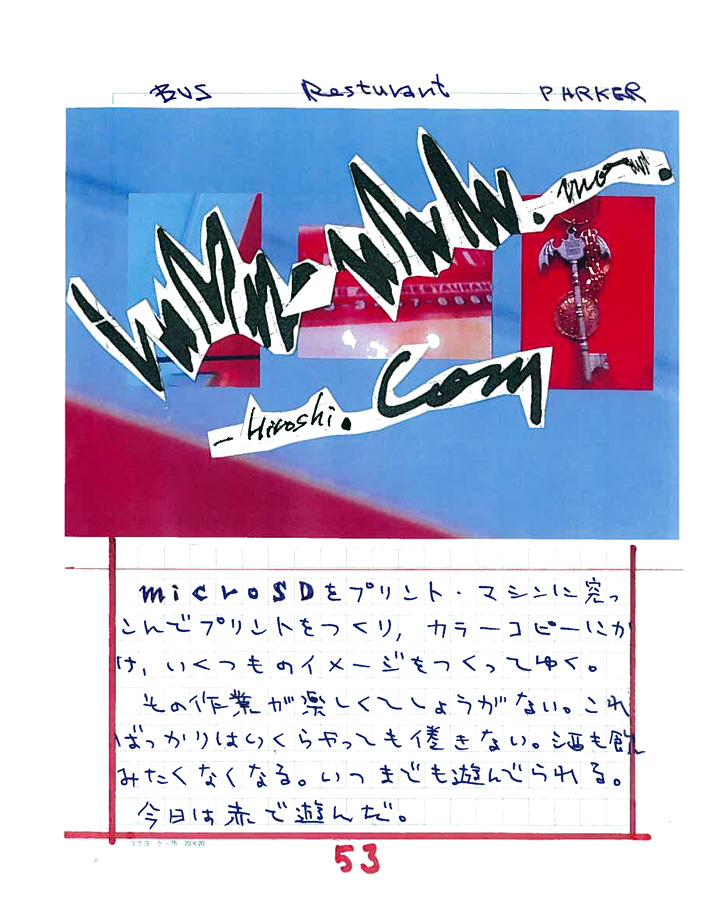 BUS Resturant PARKER
- Hiroshi. Com
RESTAURANT
microSDをプリント・マシンに突っ
こんでプリントをつくり,カラーコピーにか
け,いくつものイメージをつくってゆく。
その作業が楽しくてしょうがない。これ
ばっかりはいくらやっても倦きない。酒も飲
みたくなくなる。いつまでも遊んでられる。
今日は赤で遊んだ。
コクヨ ケ-75 20×20
53